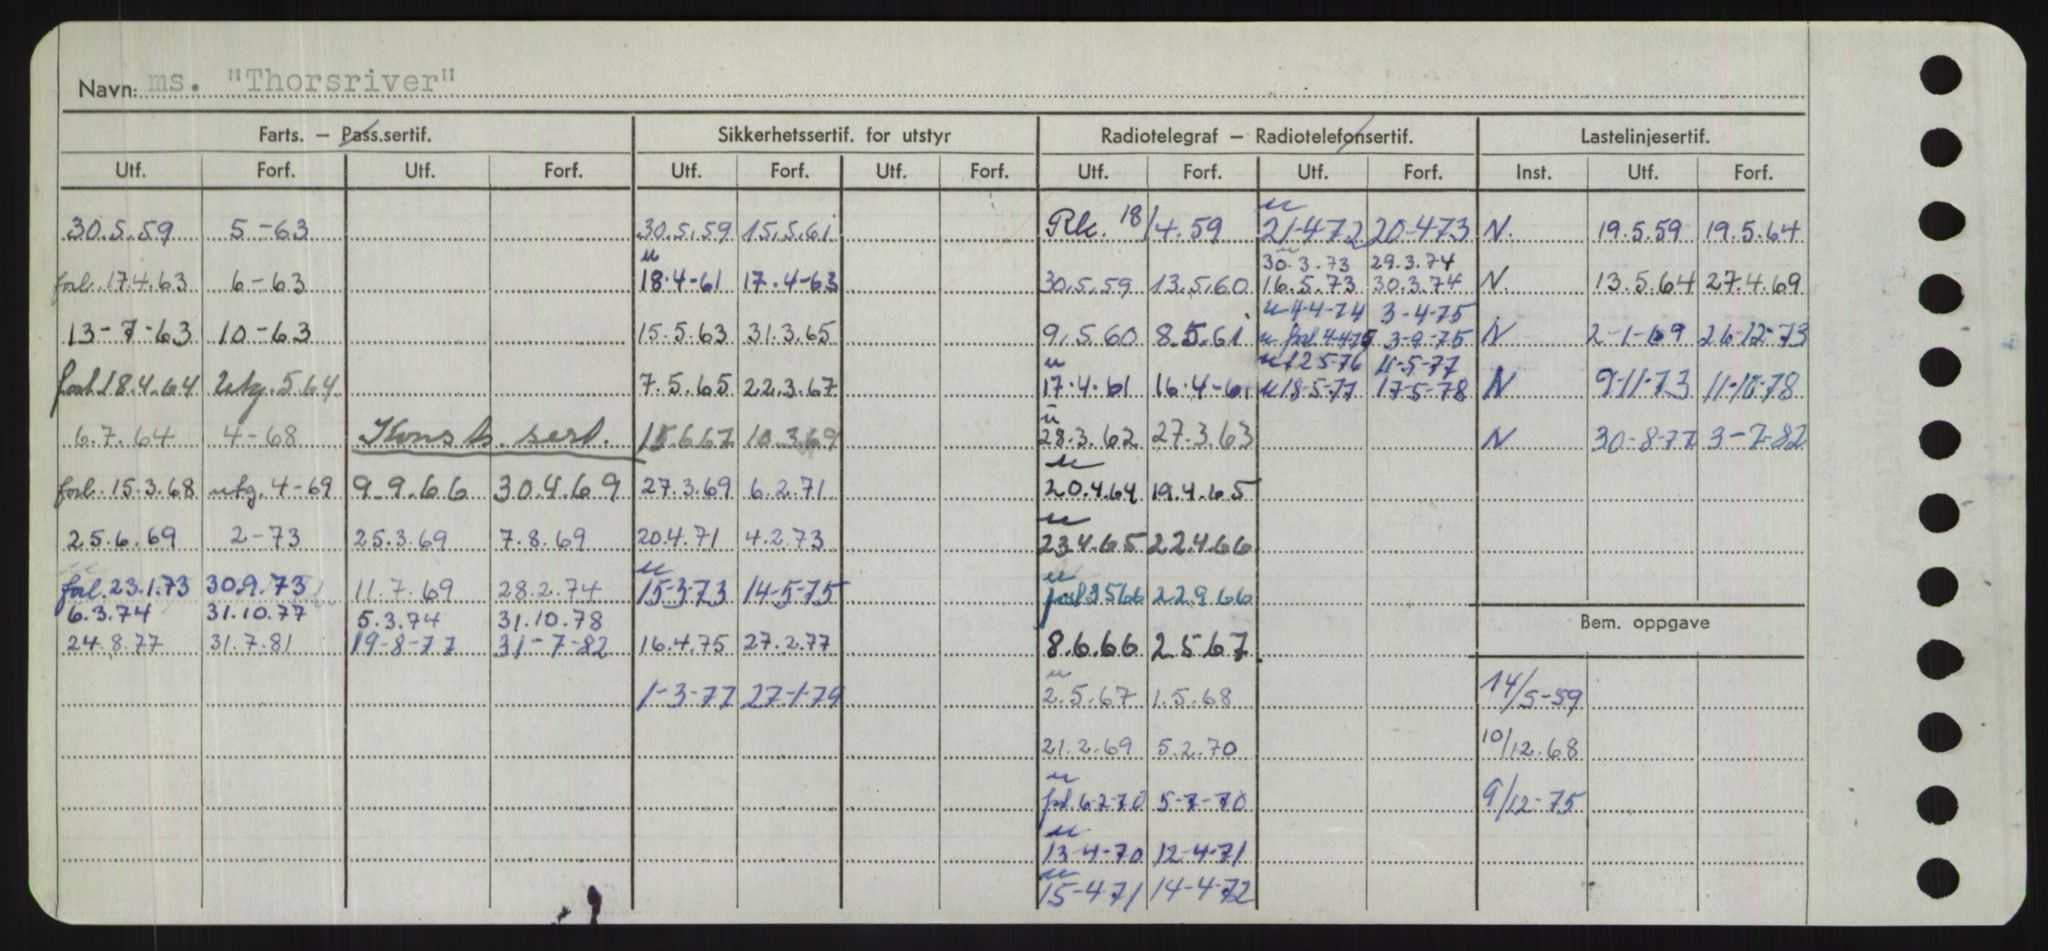 Navn: ms. "Thorsriver"
Farts. — Pass.sertif. Sikkerhetssertif. for utstyr Radiotelegraf — Radiotelefonsertif. Lastelinjesertif.
Utf. Forf. Utf. Forf. Utf. Forf. Utf. Forf. Utf. Forf. Utf. Forf. Inst. Utf. Forf.
30.5.59 5-63 30.5.59 15.5.61 Rk. 18/4.59 u 21-4-72 20-4-73 N. 19.5.59 19.5.64
u 30.3.73 29.3.74
forl. 17.4.63 6-63 18.4-61 17.4-63 30.5.59 13.5.60 16.5.73 30.3.74 N. 13.5.64 27.4.69
u 4-4-74 3-4-75
13-7-63 10-63 15.5.63 31.3.65 9.5.60 8.5.61 u forl 4-4-75 3-9-75 N 2-1-69 26-12-73
u u 12-5-76 11-5-77
forl. 18.4.64 utg. 5.64 7.5.65 22.3.67 17.4.61 16.4-61 u 18-5-77 17-5-78 N 9-11-73 11-10-78
u
6.7.64 4-68 Konstr. sert. 15.6.67 10.3.69 28.3.62 27.3.63 N 30-8-77 3-7-82
u
forl. 15.3.68 utg. 4-69 9.9.66 30.4.69 27.3.69 6.2.71 20.4.64 19.4.65
u
25.6.69 2-73 25.3.69 7.8.69 20.4.71 4.2.73 23.4.65 22.4.66
u u
forl. 23.1.73 30.9.73 11.7.69 28.2.74 15-3-73 14-5-75 forl 2566 22966
6.3.74 31.10.77 5.3.74 31.10.78
Bem. oppgave
24.8.77 31.7.81 19-8-77 31-7-82 16.4.75 27.2.77 8.6.66 2.5.67
u
1-3-77 27-1-79 2.5.67 1.5.68 14/5-59
21.2.69 5.2.70 10/12.68
u
forl. 6-2-70 5-7-70 9/12-75
u
13-4-70 12-4-71
u
15-4-71 14-4-72